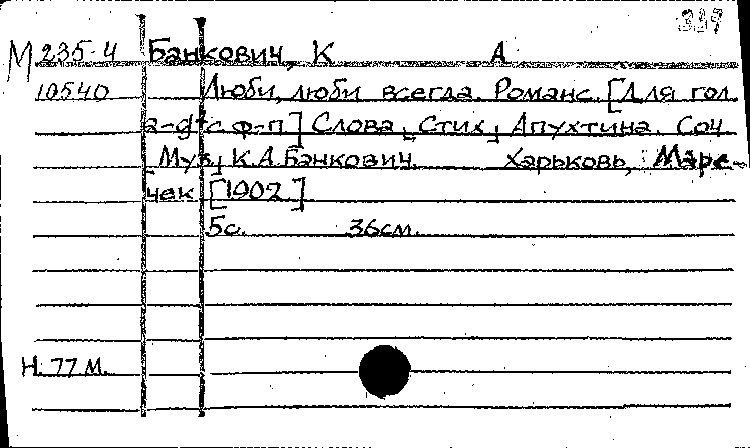 339
М 235-4 Банкович, К А
10540 Люби, люби всегда. Романс. [Для гол.
a-d² с ф-п] Слова [Стих] Апухтина. Соч.
[Муз] К.А.Банкович. Харьковь, Маре-
чек [1902.]
5с. 36см.
Н. 77 м.